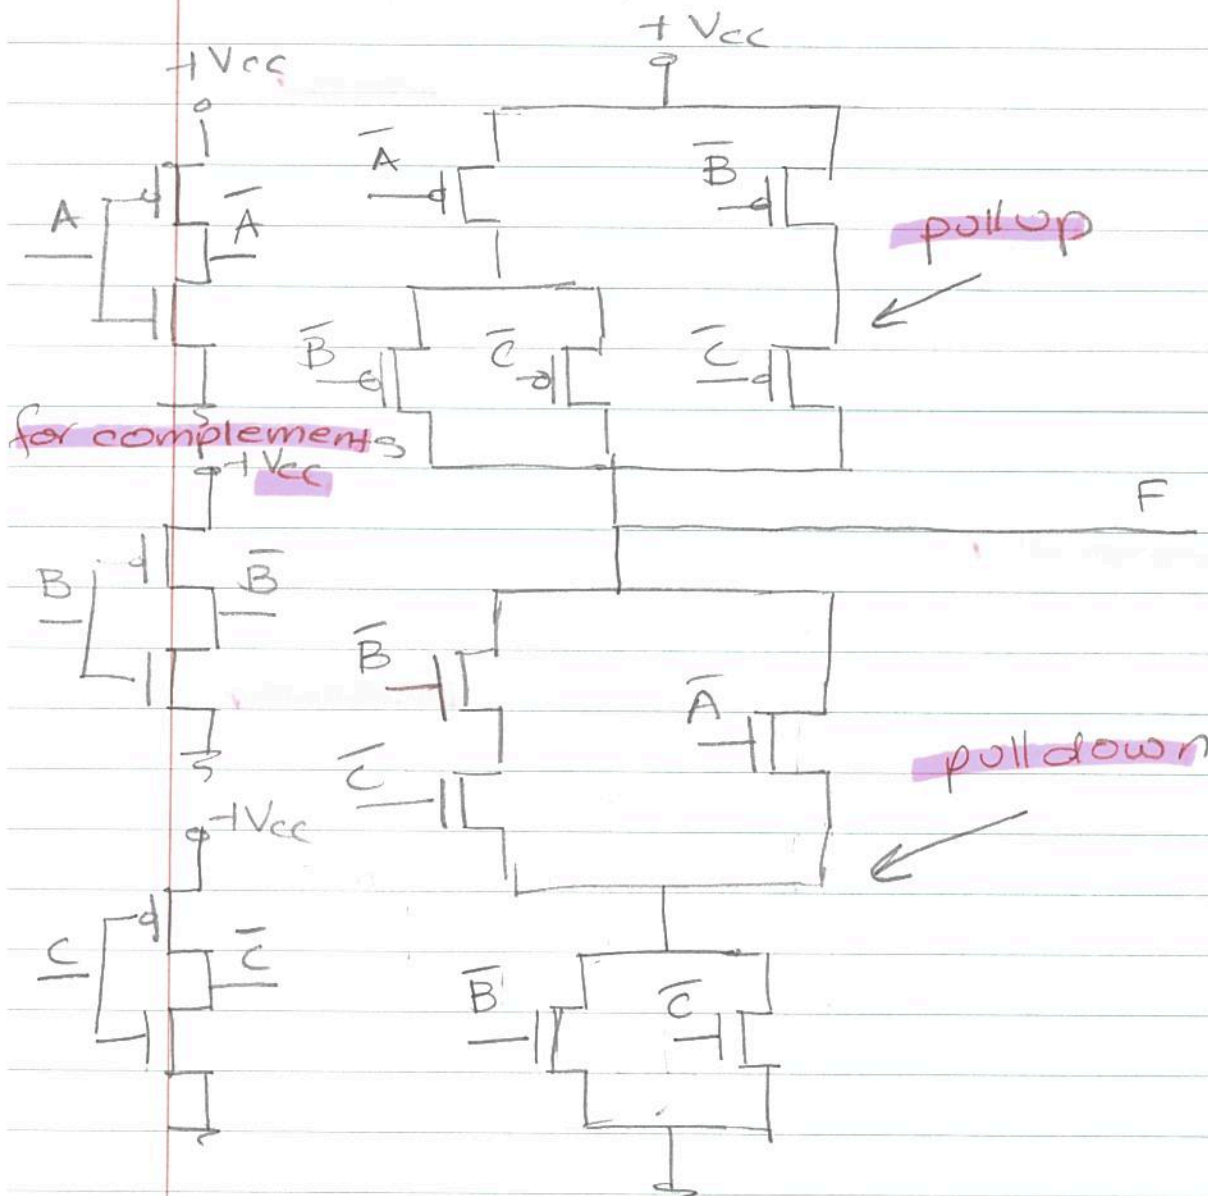 +Vcc
+Vcc
A̅
B̅
A
A̅
pull up
B̅
C̅
C̅
for complements
+Vcc
F
B
B̅
B̅
A̅
C̅
pull down
+Vcc
C
C̅
B̅
C̅